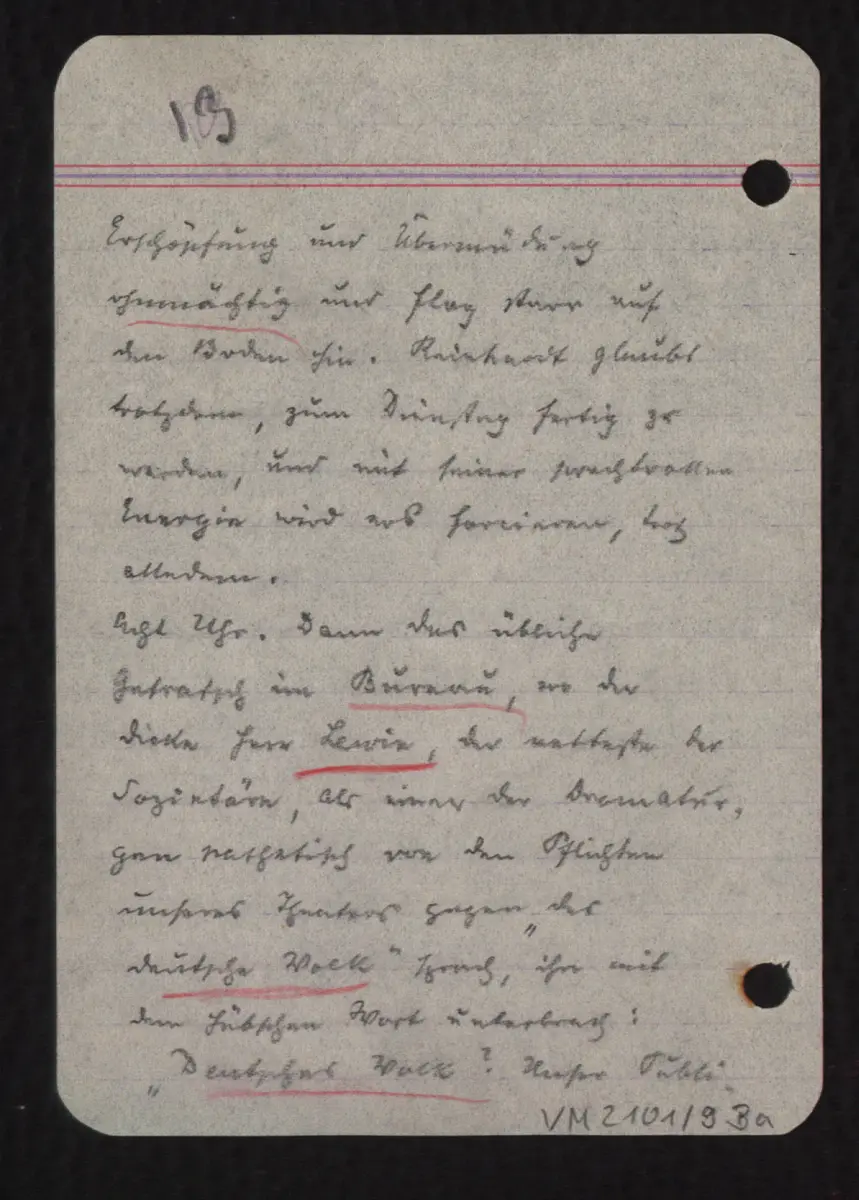 13
Erschöpfung und Übermüdung
ohnmächtig und flog starr auf
den Boden hin. Reinhardt glaubt
trotzdem, zum Dienstag fertig zu
werden, und mit seiner prachtvollen
Energie wird ers forcieren, trotz
alledem.
Acht Uhr. Dann das übliche
Getratsch im Bureau, wo der
dicke Herr Lewin, der netteste der
Sozietäre, als einer der Dramatur,
gen pathetisch von den Pflichten
unseres Theaters gegen „das
deutsche Volk" sprach, ihn mit
dem hübschen Wort unterbrach:
„Deutsches Volk? Unser Publi-
VM 2101/9 Ba